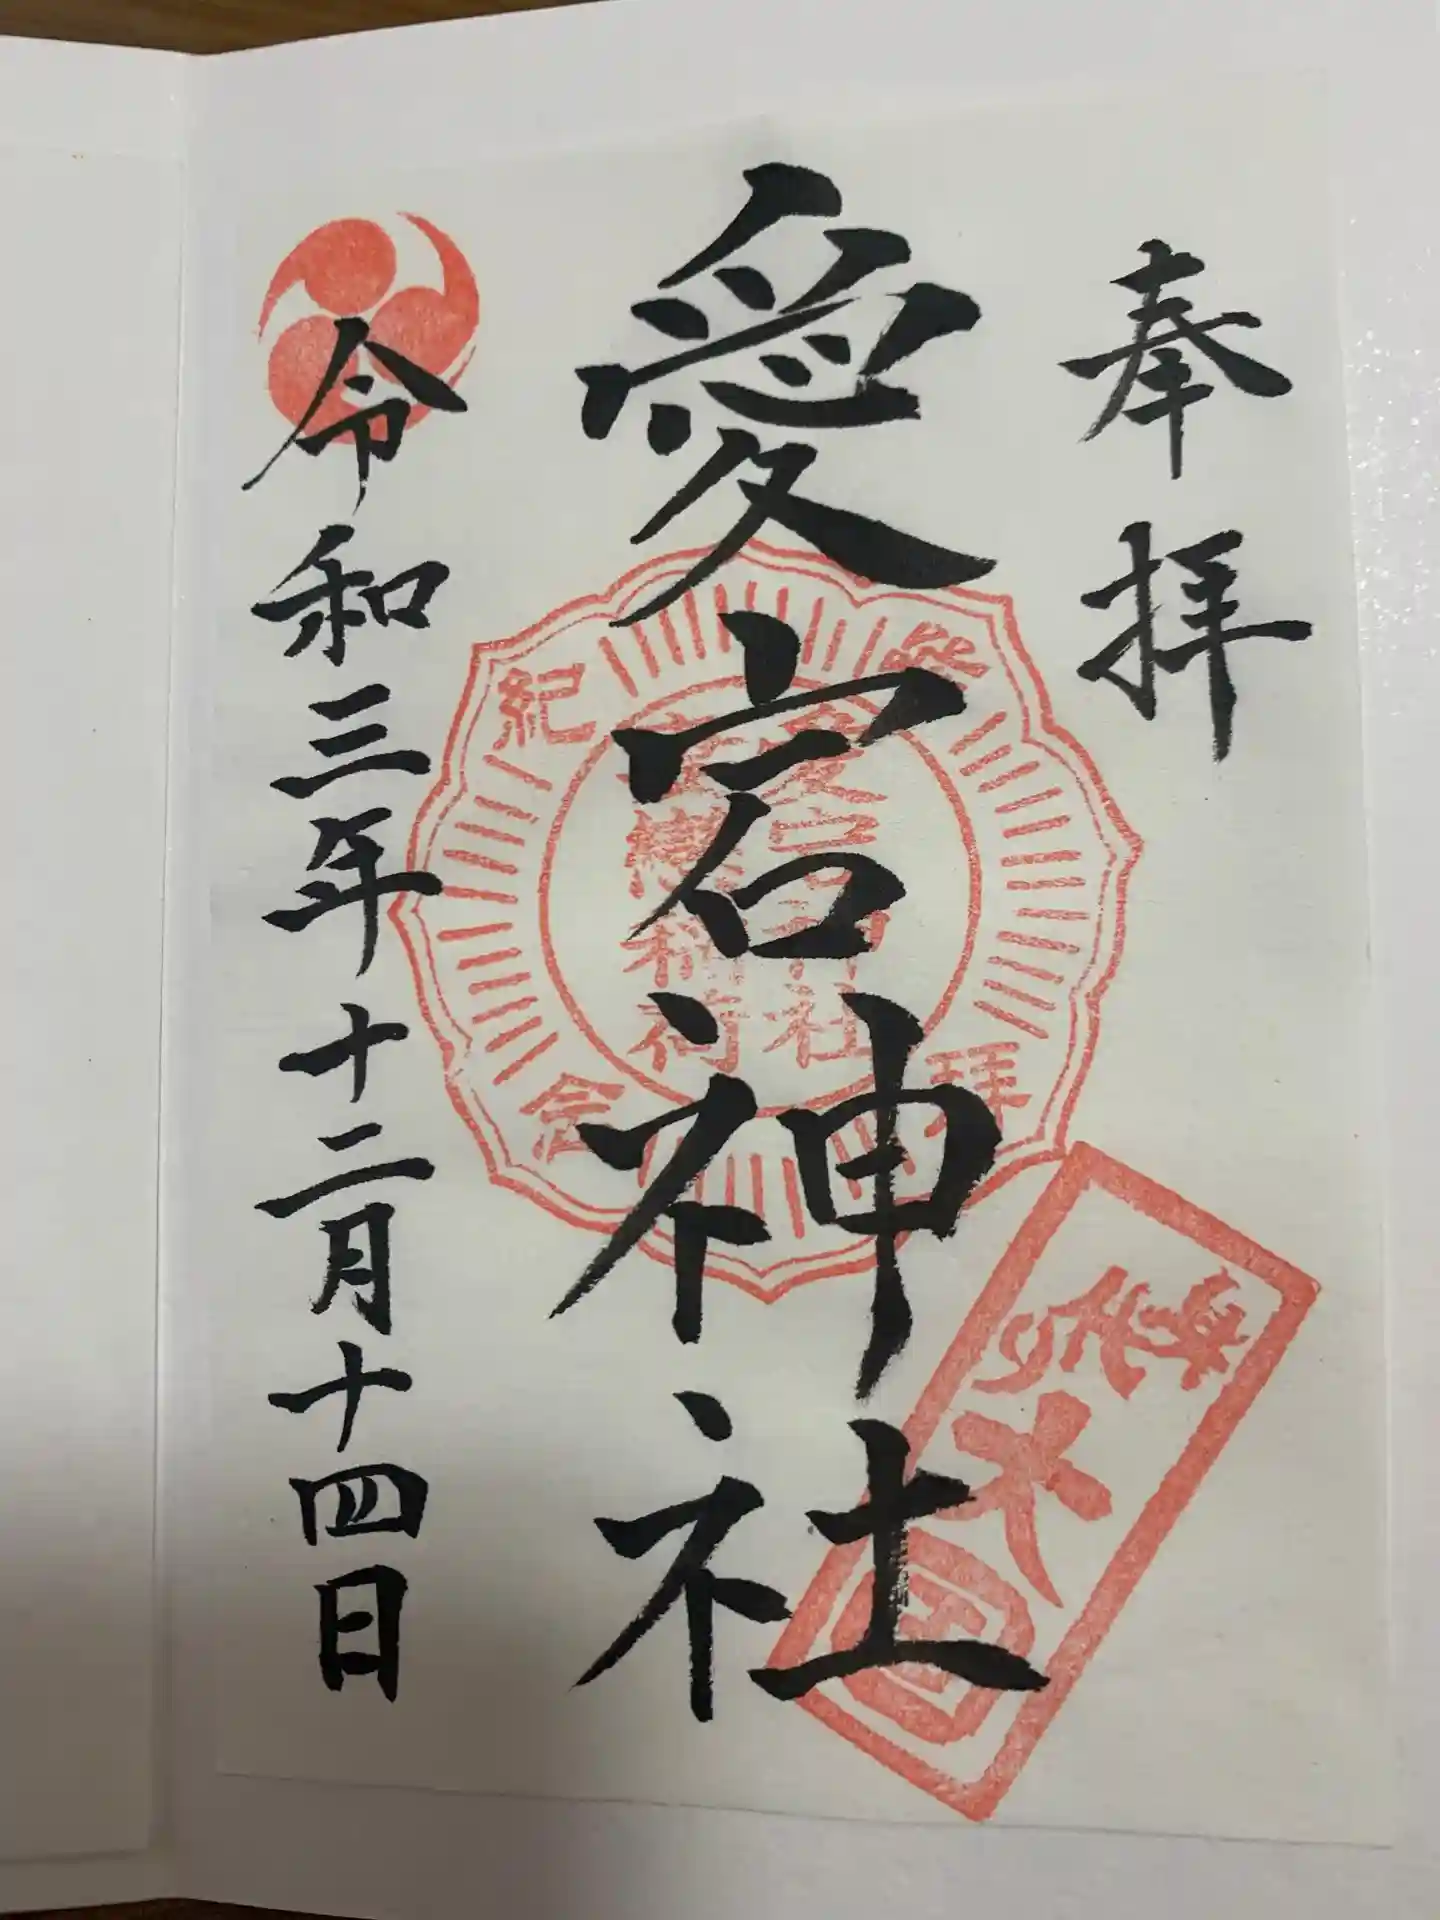 奉拝
愛宕神社
令和三年十二月十四日
参拝
紀念
愛宕神社
稲荷